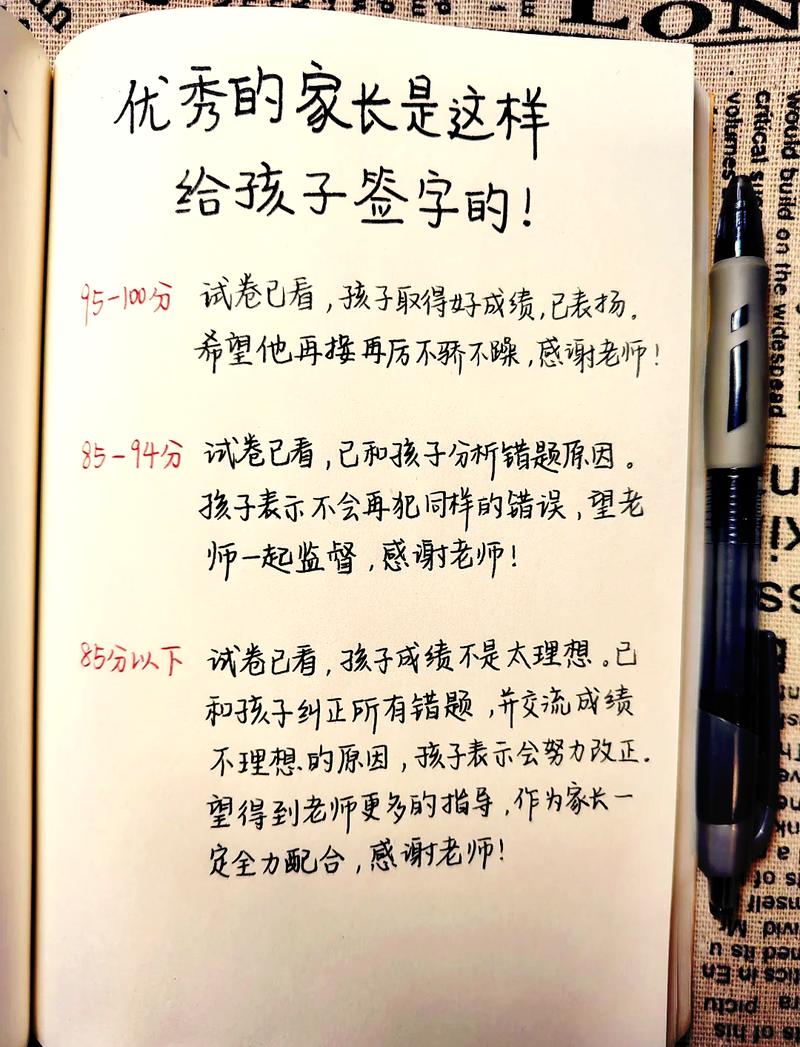 优秀的家长是这样
给孩子签字的!
95-100分 试卷已看,孩子取得好成绩,已表扬。
希望他再接再厉不骄不躁,感谢老师!
85-94分 试卷已看,已和孩子分析错题原因。
孩子表示不会再犯同样的错误,望老
师一起监督,感谢老师!
85分以下 试卷已看,孩子成绩不是太理想。已
和孩子纠正所有错题,并交流成绩
不理想的原因,孩子表示会努力改正.
望得到老师更多的指导,作为家长一
定全力配合,感谢老师!
LON
would build on the
critical
volumes
widespread